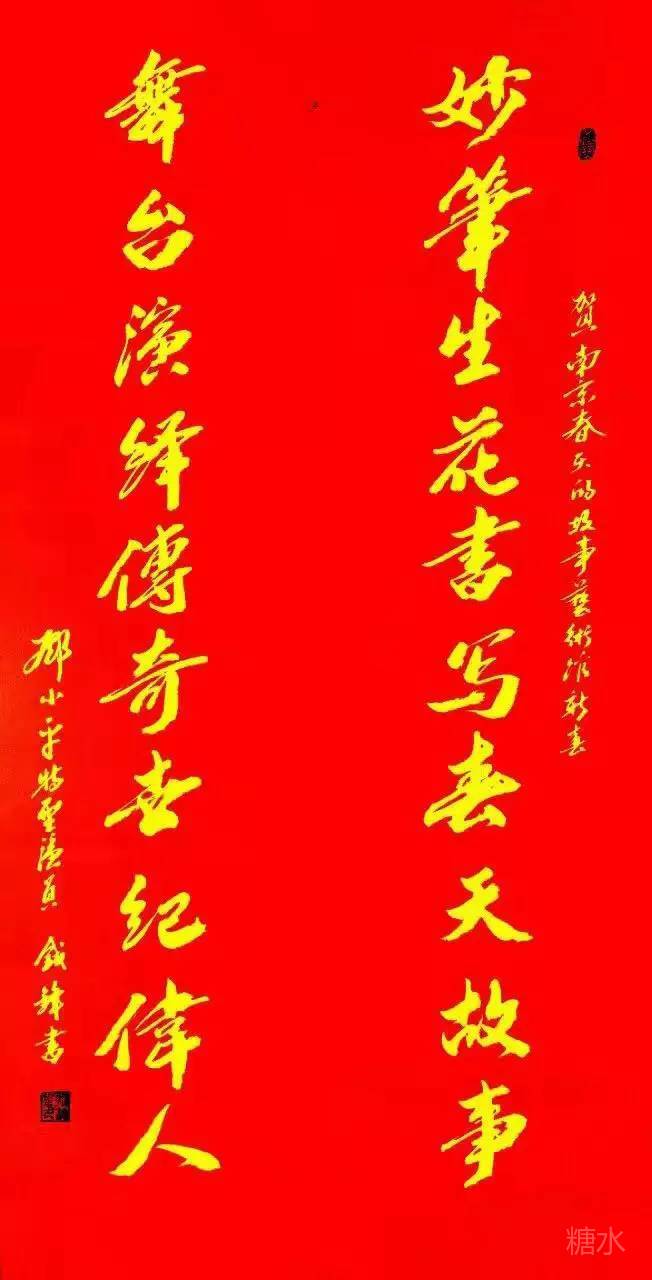 贺南京春天的故事藝術馆新春
妙筆生花書写春天故事
舞台演绎傳奇世纪偉人
邓小平特型演员 钱锋書
糖水